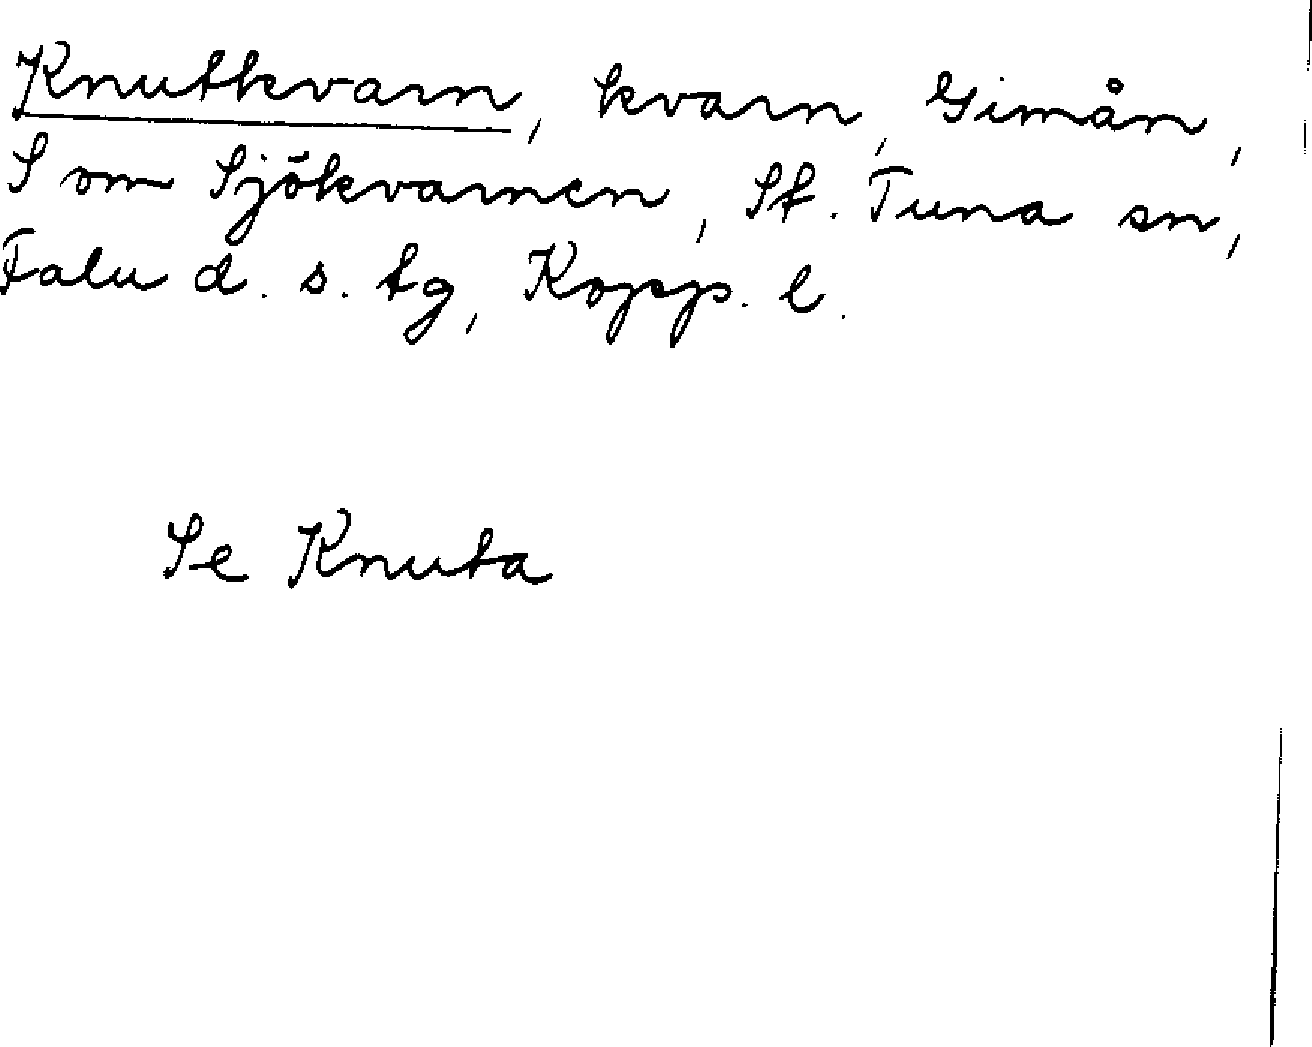 Knutkvarn, kvarn, Gimån,
S om Sjökvarnen, St. Tuna sn,
Falu d. s. tg, Kopp. l.
Se Knuta